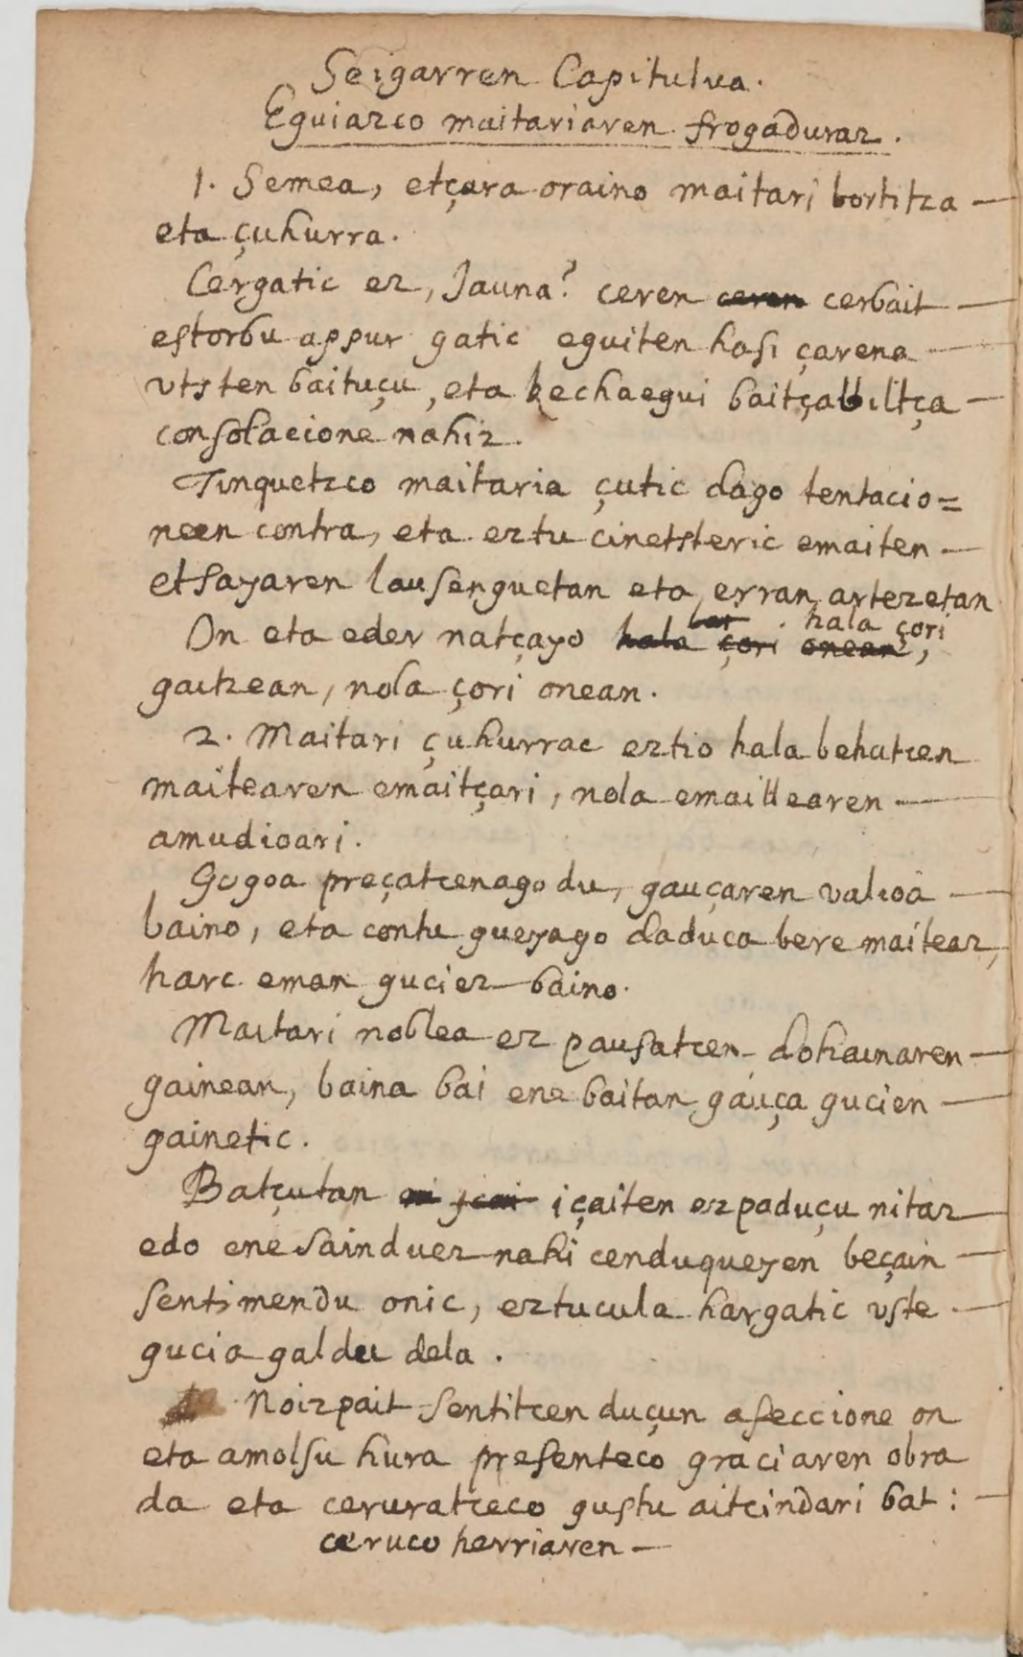 Seigarren Capitulua.
Eguiazco maitariaren frogaduraz.
1. Semea, etçara oraino maitari bortitza —
eta çuhurra.
Cergatic ez, Jauna? ceren ceren cerbait —
estorbu appur gatic eguiten hasi çarena —
vtsten baituçu, eta kechaegui baitçabiltça —
consolacione nahiz.
Tinquetzco maitaria çutic dago tentacio=
neen contra, eta eztu cinetsteric emaiten —
etsayaren lausenguetan eta erran artezetan
On eta eder natçayo hala çori onean, hala çori
gaitzean, nola çori onean.
2. Maitari çuhurrac eztio hala behatcen
maitearen emaitçari, nola emaillearen —
amudioari.
Gogoa preçatcenago du, gauçaren valioa —
baino, eta contu gueyago daduca bere maiteaz,
harc eman guciez baino.
Maitari noblea ez pausatcen dohainaren —
gainean, baina bai ene baitan gauça gucien —
gainetic.
Batçutan içaiten ezpaduçu nitaz —
edo ene sainduez nahi cenduqueyen beçain —
sentimendu onic, eztucula hargatic vste —
gucia galdu dela.
Noizpait sentitcen duçun afeccione on
eta amolsu hura presenteco graciaren obra
da eta ceruratceco gustu aitcindari bat: —
ceruco herriaren —